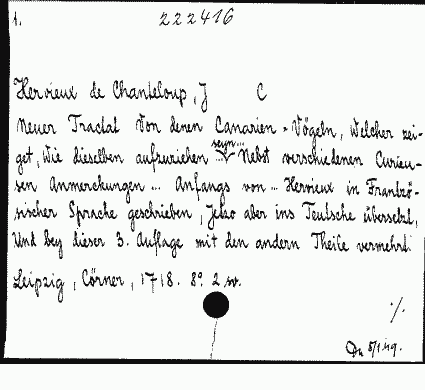 1. 222416
Hervieux de Chanteloup, J C
Neuer Tractat Von denen Canarien-Vögeln, Welcher zei-
get, Wie dieselben aufzuziehen ... seyn ... Nebst verschiedenen Curieu-
sen Anmerckungen ... Anfangs von ... Hervieux in Frantzö-
sischer Sprache geschrieben, Jetzo aber ins Teutsche übersetzt,
Und bey dieser 3. Auflage mit den andern Theile vermehrt.
Leipzig, Cörner, 1718. 8° 2 w.
./.